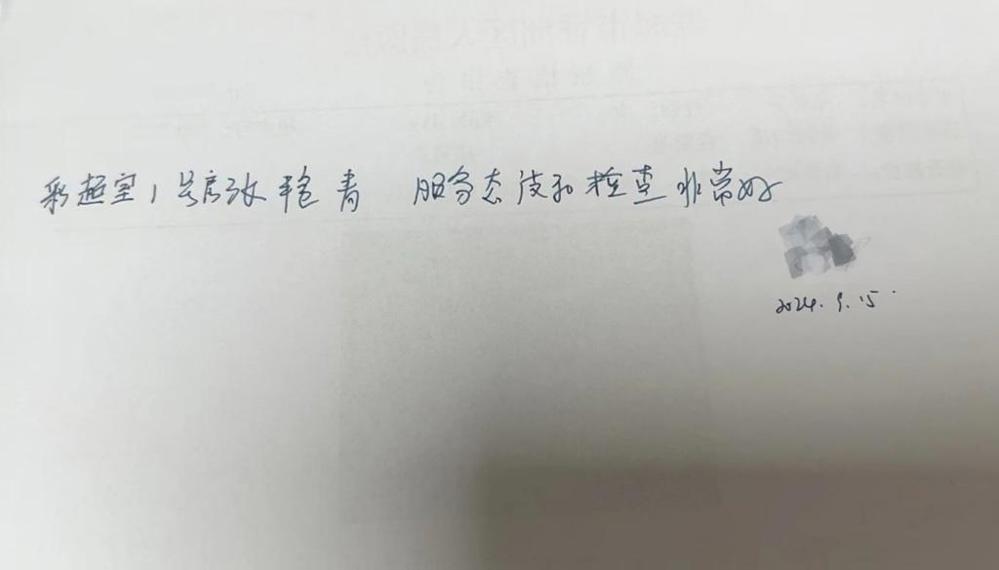 彩超室1号房张艳青 服务态度和检查非常好
2024.9.15